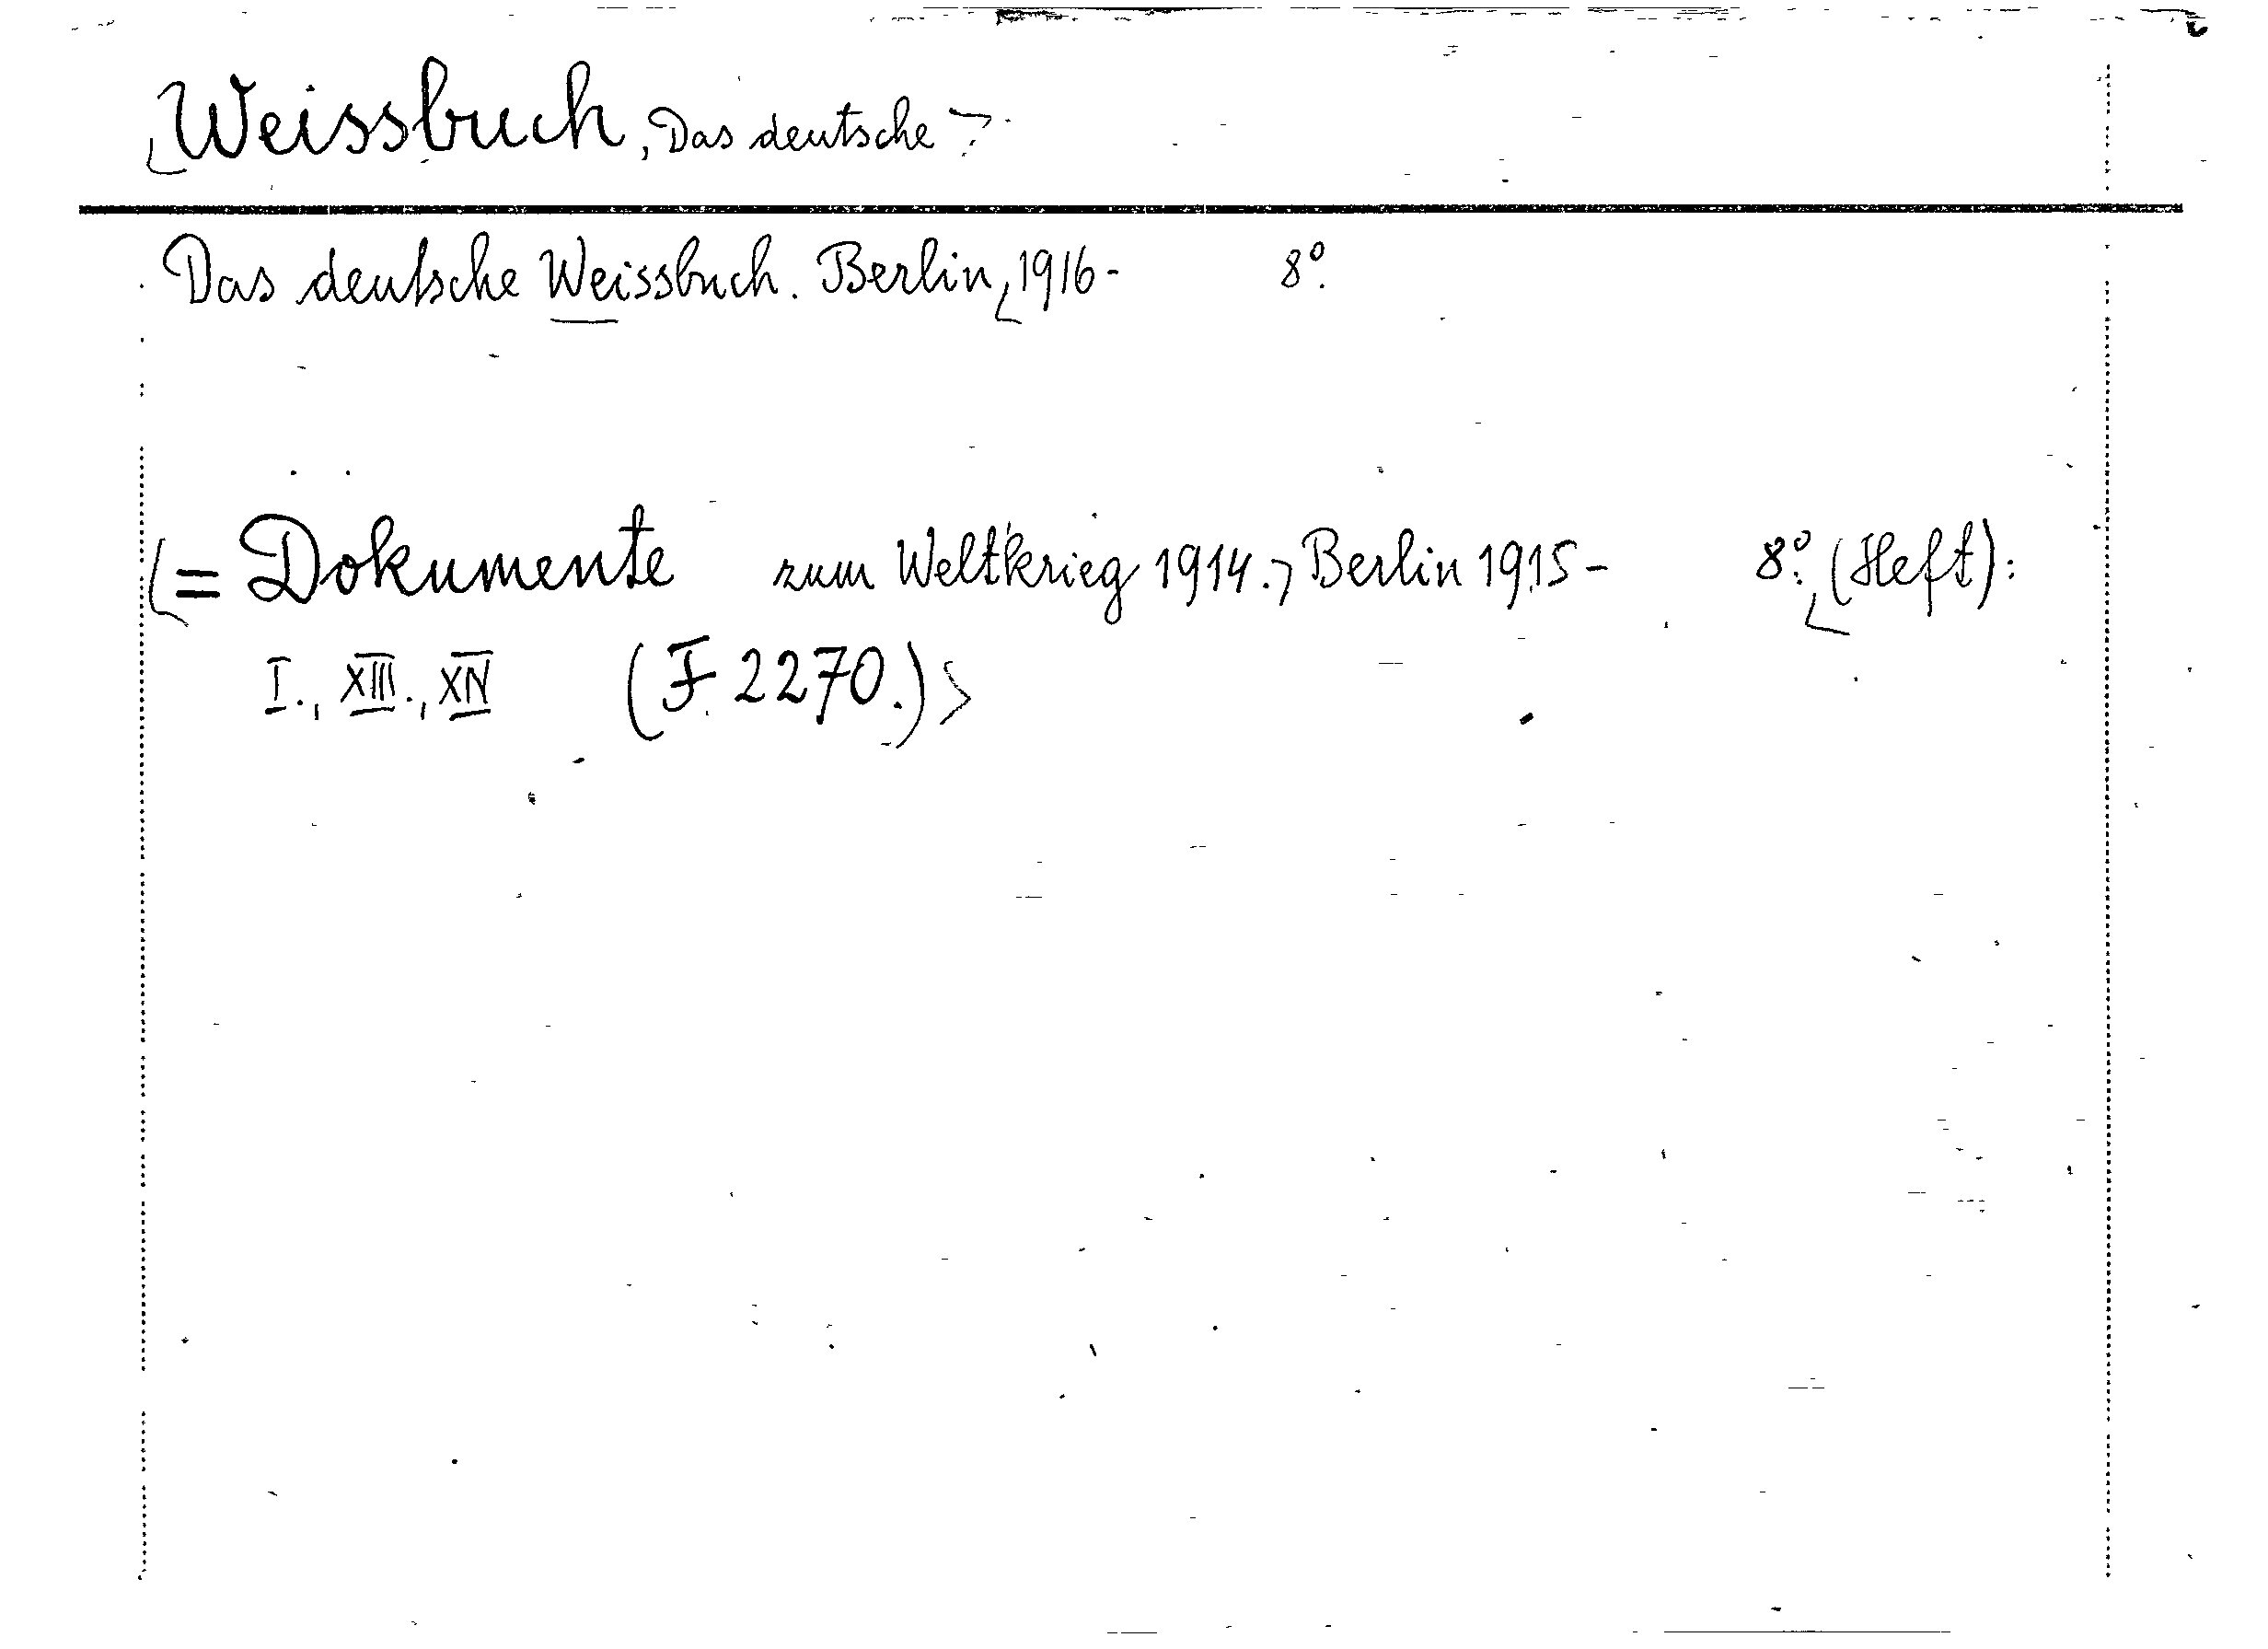 Weissbuch, Das deutsche
Das deutsche Weissbuch. Berlin, 1916- 8°.
(= Dokumente zum Weltkrieg 1914., Berlin 1915- 8°. (Heft):
I., XIII., XIV (F. 2270.)>